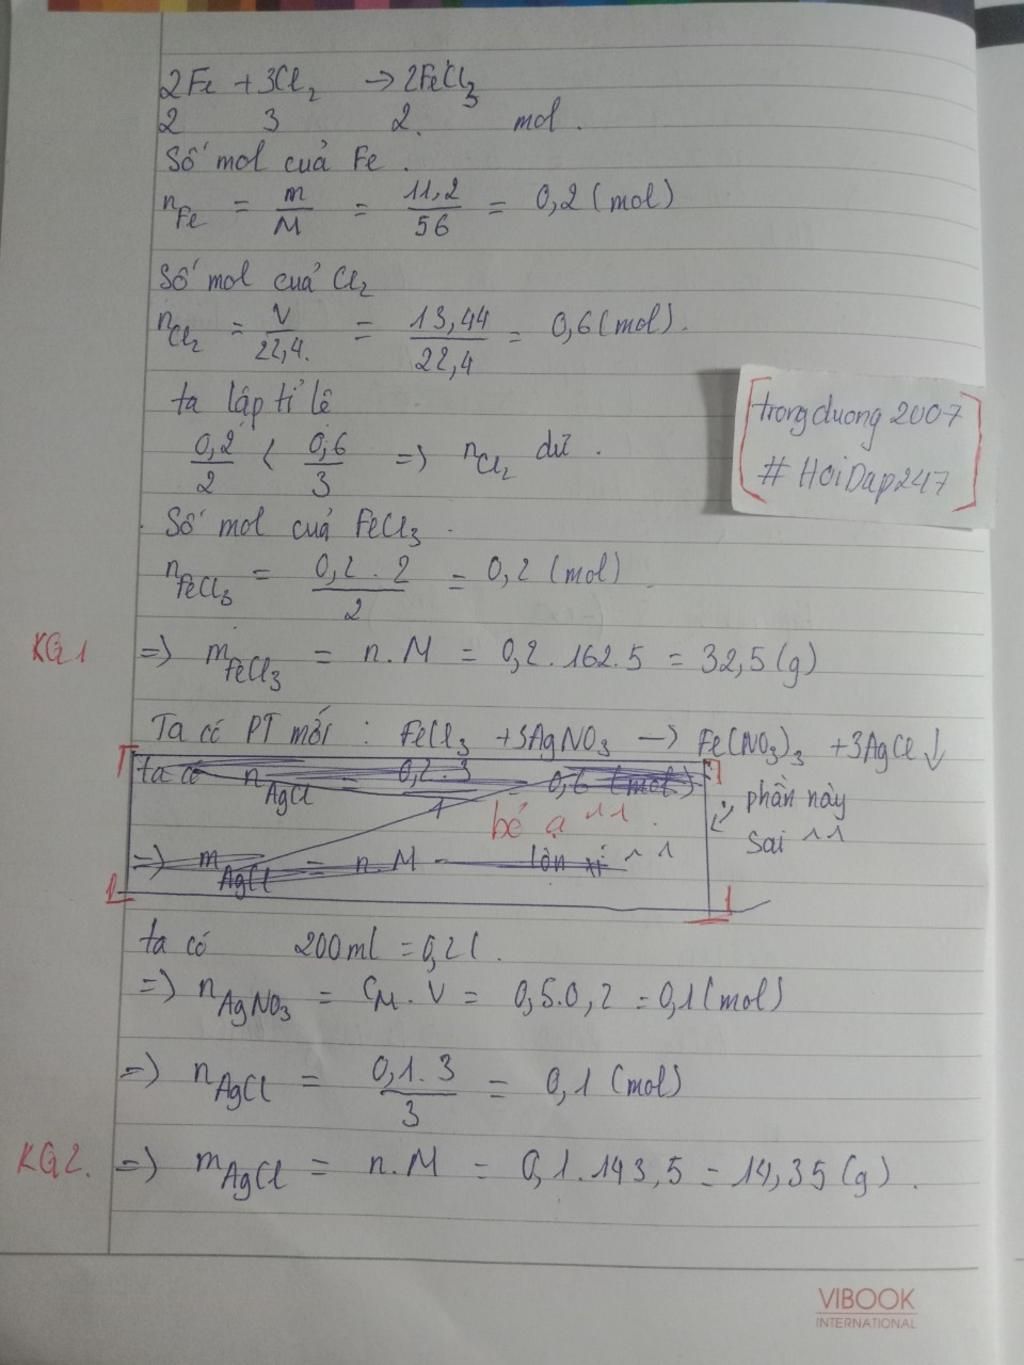 2Fe + 3Cl₂ → 2FeCl₃
2 3 2. mol.
Số mol của Fe.
nFe = m/M = 11,2/56 = 0,2 (mol)
Số mol của Cl₂
nCl₂ = V/22,4. = 13,44/22,4 = 0,6 (mol).
ta lập tỉ lệ
0,2/2 < 0,6/3 => nCl₂ dư.
trongduong2007
# HoiDap247
Số mol của FeCl₃.
nFeCl₃ = 0,2.2/2 = 0,2 (mol)
KQ1 => mFeCl₃ = n.M = 0,2.162.5 = 32,5 (g)
Ta có PT mới: FeCl₃ + 3AgNO₃ → Fe(NO₃)₃ + 3AgCl↓
ta có nAgCl = 0,2.3/1 = 0,6 (mol)
bé ạ ^^.
phần này
sai ^^
=> mAgCl = n.M = lộn xí ^^
ta có 200ml = 0,2l.
=> nAgNO₃ = CM.V = 0,5.0,2 = 0,1 (mol)
=> nAgCl = 0,1.3/3 = 0,1 (mol)
KQ2. => mAgCl = n.M = 0,1.143,5 = 14,35 (g).
VIBOOK
INTERNATIONAL